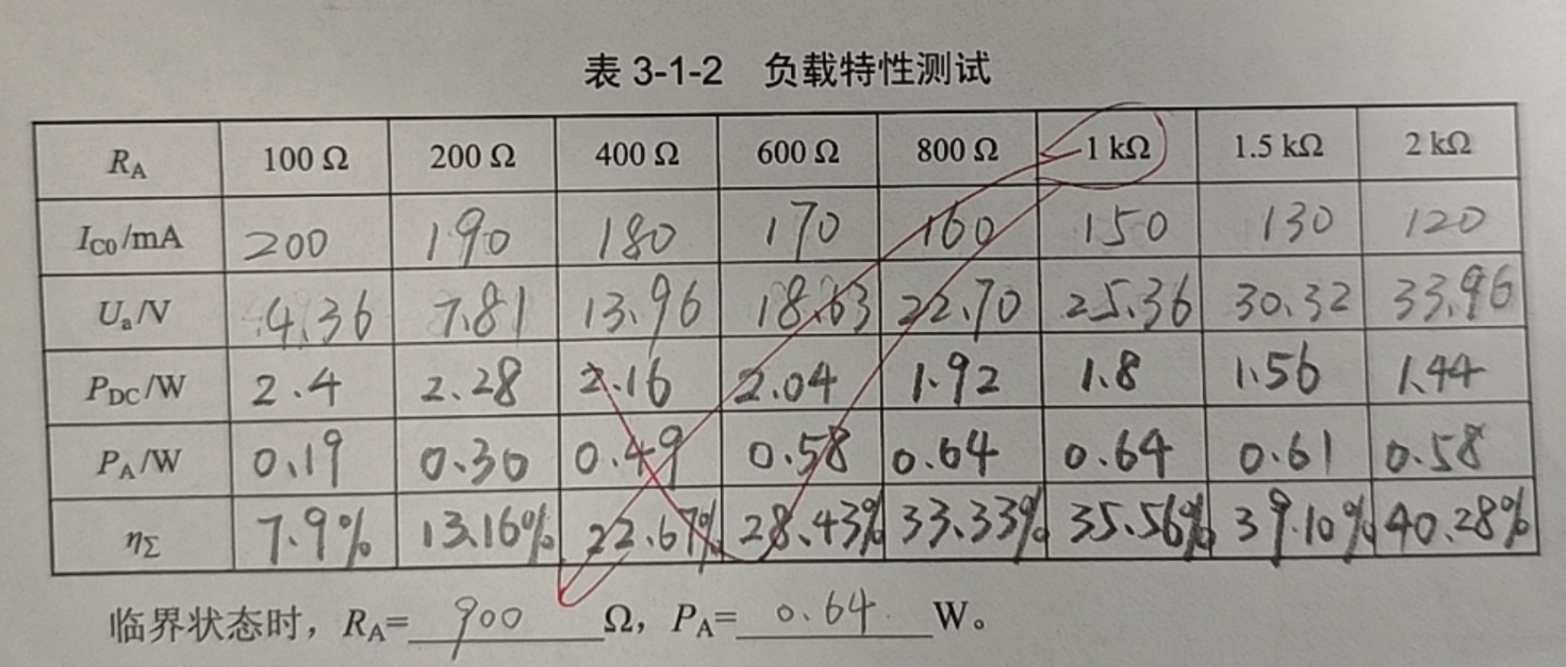 表 3-1-2 负载特性测试
R_A 100 Ω 200 Ω 400 Ω 600 Ω 800 Ω 1 kΩ 1.5 kΩ 2 kΩ
I_C0/mA 200 190 180 170 160 150 130 120
U_a/V 4.36 7.81 13.96 18.63 22.70 25.36 30.32 33.96
P_DC/W 2.4 2.28 2.16 2.04 1.92 1.8 1.56 1.44
P_A/W 0.19 0.30 0.49 0.58 0.64 0.64 0.61 0.58
η_Σ 7.9% 13.16% 22.67% 28.43% 33.33% 35.56% 39.10% 40.28%
临界状态时，R_A= 900 Ω，P_A= 0.64 W。